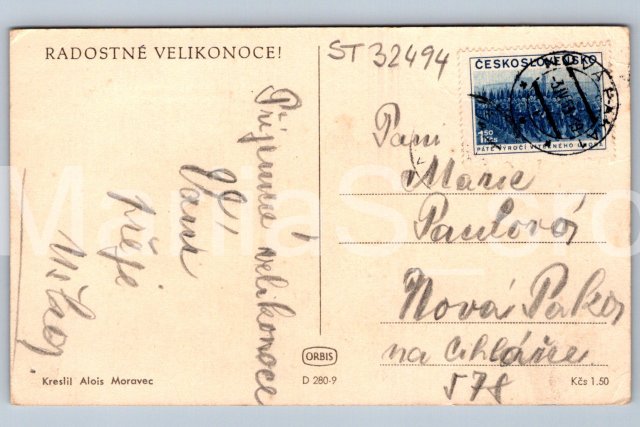 RADOSTNÉ VELIKONOCE!
ST 32494
ČESKOSLOVENSKO
1.50
Kčs
PÁTÉ VÝROČÍ VÍTĚZNÉHO ÚNORA
Příjemné velikonoce
Vám
přeje
Paní
Marie
Paulová
Nová Paka
na Cihlářce
578
ORBIS
Kreslil Alois Moravec
D 280-9
Kčs 1.50